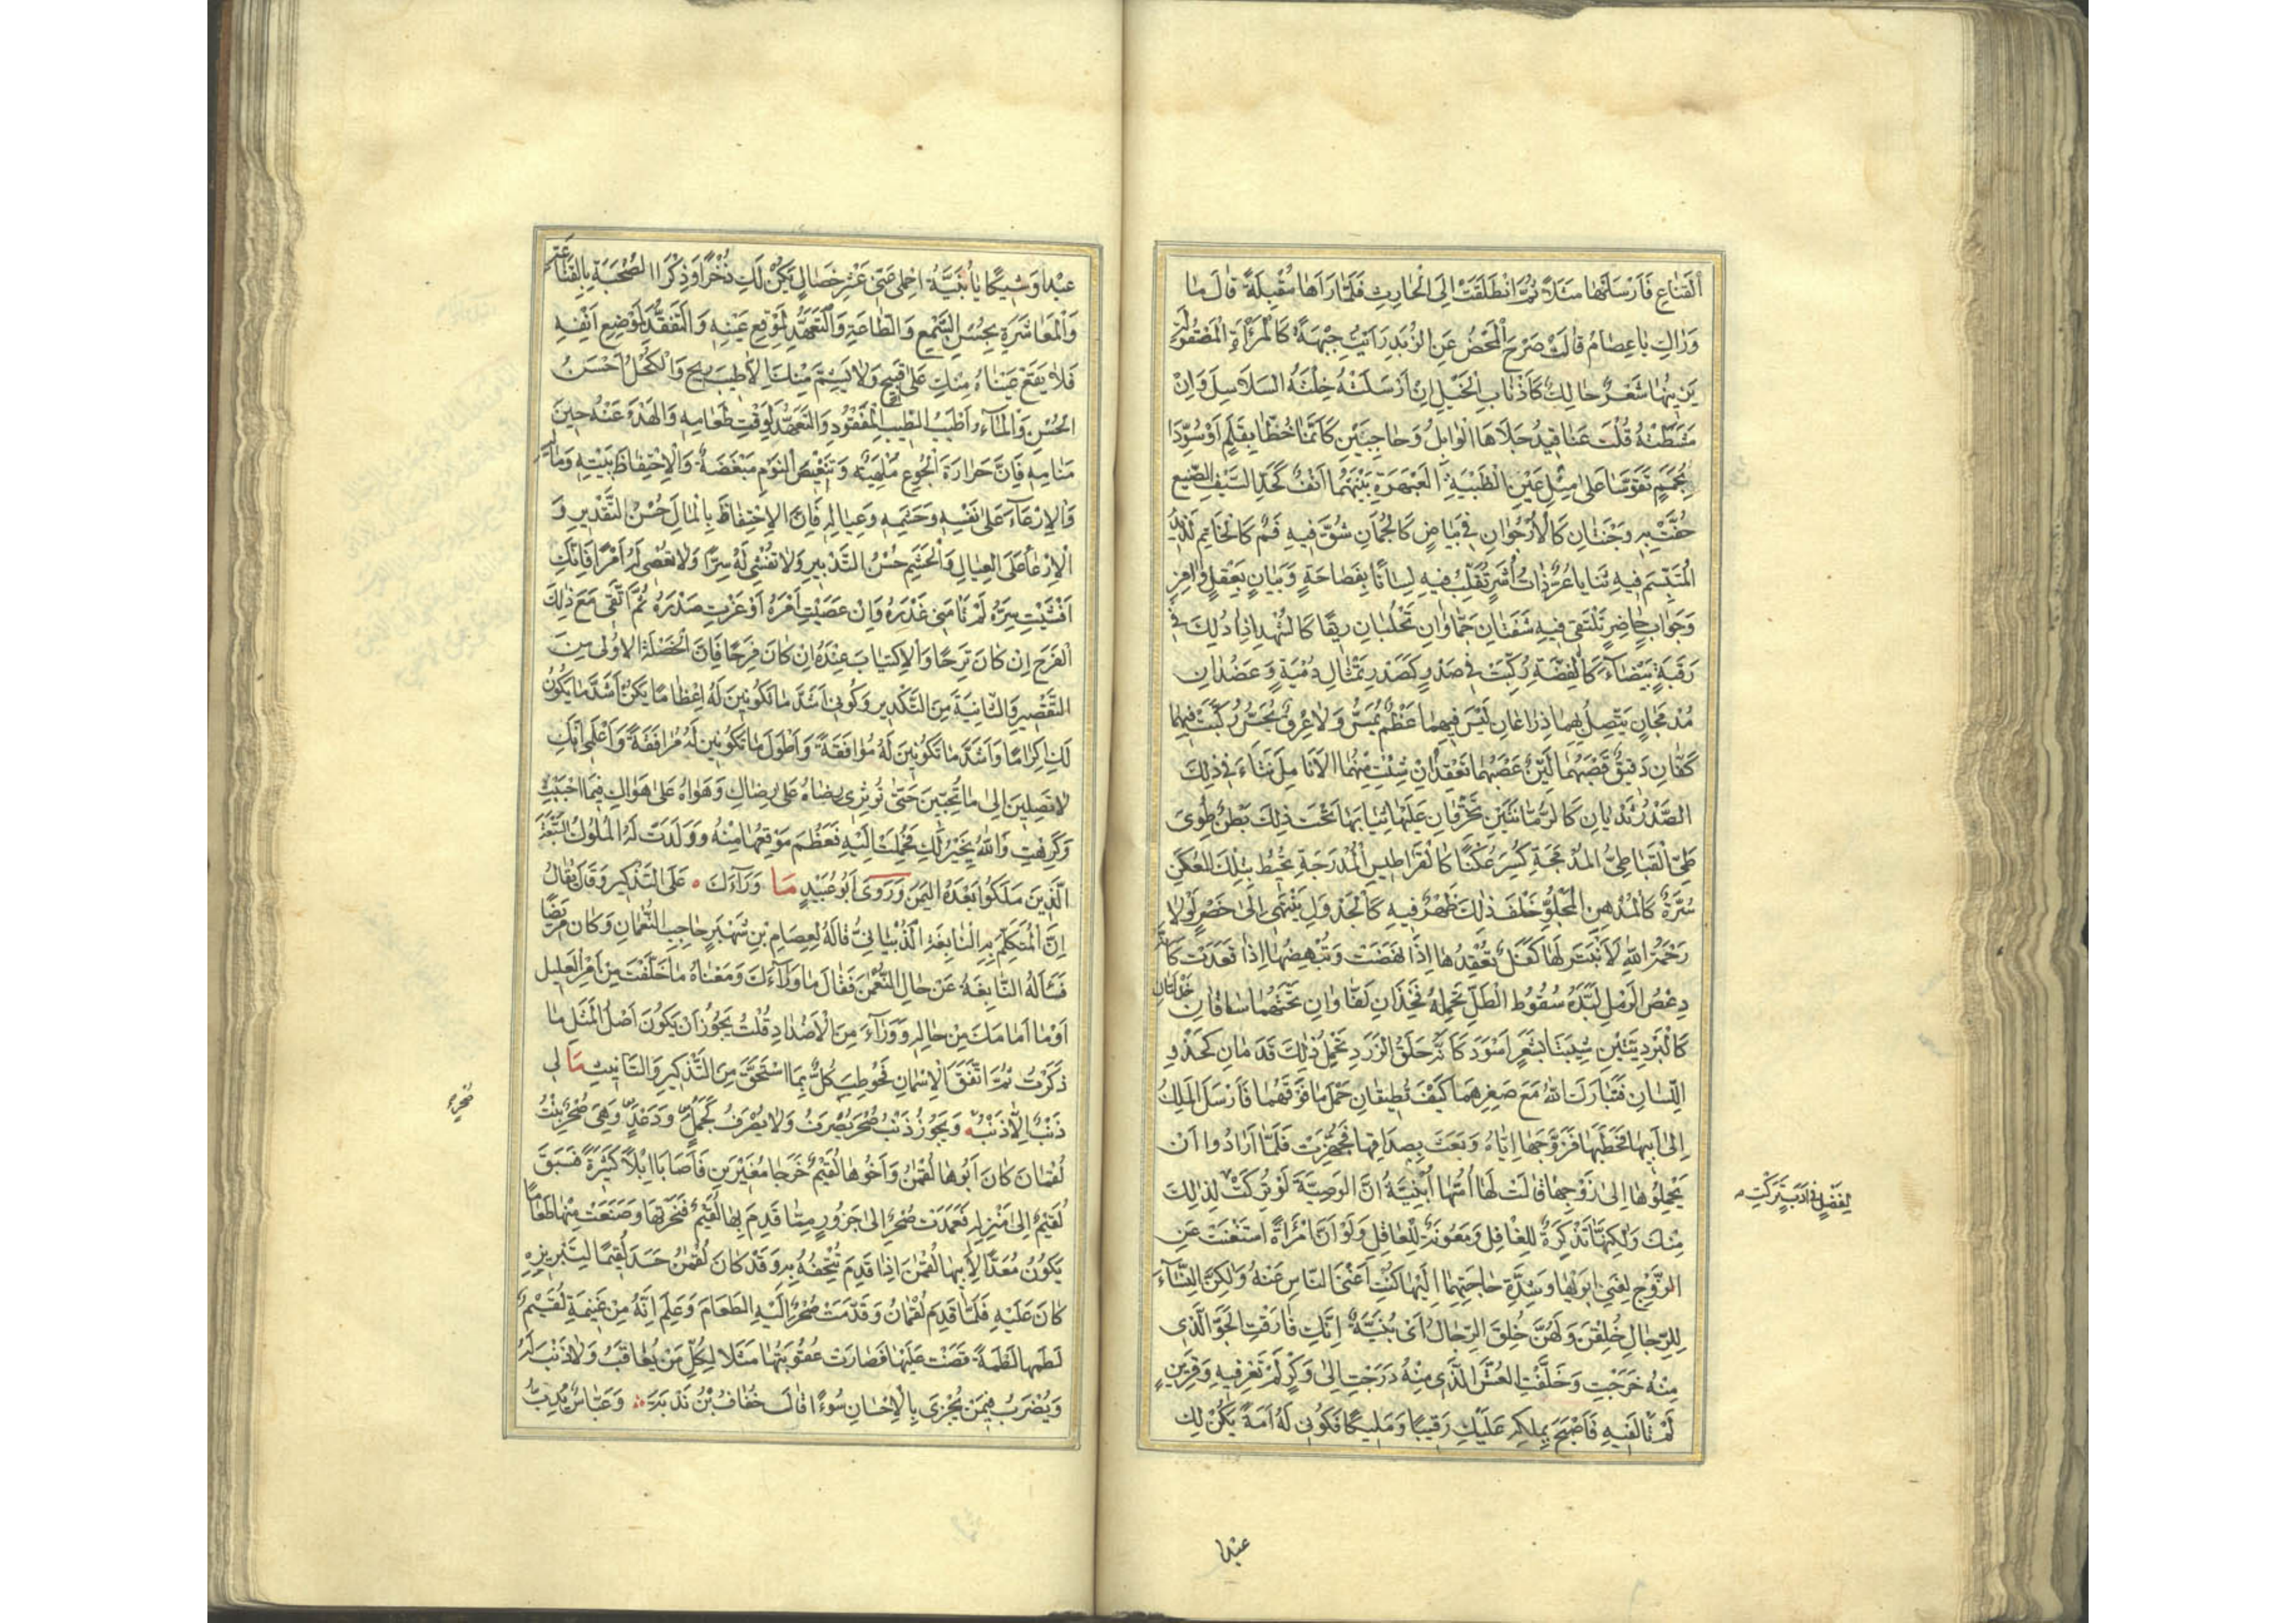 اَلْقِنَاعِ فَاَرْسَلَتْهَا مَثَلًا ثُمَّ انْطَلَقَتْ اِلَى الْحَارِثِ فَلَمَّا رَآهَا مُقْبِلَةً قَالَ مَا
وَرَاءَكِ يَا عِصَامُ قَالَتْ صَرَّحَ الْمَخْضُ عَنِ الزُّبَدِ رَاَيْتُ جَبْهَةً كَالْمِرْآةِ الْمَصْقُولَةِ
يَزِينُهَا شَعْرٌ حَالِكٌ كَاَذْنَابِ الْخَيْلِ اِنْ اَرْسَلَتْهُ خِلْتَهُ السَّلَاسِلَ وَاِنْ
مَشَّطَتْهُ قُلْتَ عَنَاقِيدُ جَلَاهَا الْوَابِلُ وَحَاجِبَيْنِ كَاَنَّمَا خُطَّا بِقَلَمٍ اَوْ سُوِّدَا
بِحُمَمٍ تَقَوَّسَا عَلَى مِثْلِ عَيْنِ الظَّبْيَةِ الْعَبْهَرَةِ بَيْنَهُمَا اَنْفٌ كَحَدِّ السَّيْفِ الصَّنِيعِ
حُفَّتْ بِهِ وَجْنَتَانِ كَالْاُرْجُوَانِ فِي بَيَاضٍ كَالْجُمَانِ شُقَّ فِيهِ فَمٌ كَالْخَاتَمِ لَذِيذُ
الْمُبْتَسَمِ فِيهِ ثَنَايَا غُرٌّ ذَاتُ اُشَرٍ تُقَلِّبُ فِيهِ لِسَانًا بِفَصَاحَةٍ وَبَيَانٍ بِعَقْلٍ وَافِرٍ
وَجَوَابٍ حَاضِرٍ تَلْتَقِي فِيهِ شَفَتَانِ حَمْرَاوَانِ تَحْلُبَانِ رِيقًا كَالشَّهْدِ اِذَا دُلِكَ فِي
رَقَبَةٍ بَيْضَاءَ كَالْفِضَّةِ رُكِّبَتْ فِي صَدْرٍ كَصَدْرِ تِمْثَالِ دُمْيَةٍ وَعَضُدَانِ
مُدْمَجَانِ يَتَّصِلُ بِهِمَا ذِرَاعَانِ لَيْسَ فِيهِمَا عَظْمٌ يُمَسُّ وَلَا عِرْقٌ يُجَسُّ رُكِّبَتْ فِيهِمَا
كَفَّانِ دَقِيقٌ قَصَبُهُمَا لَيِّنٌ عَصَبُهُمَا تَعْقِدُ اِنْ شِئْتَ مِنْهُمَا الْاَنَامِلَ نَتَاَ فِي ذٰلِكَ
الصَّدْرِ ثَدْيَانِ كَالرُّمَّانَتَيْنِ يَخْرِقَانِ عَلَيْهَا ثِيَابَهَا تَحْتَ ذٰلِكَ بَطْنٌ طُوِىَ
طَيَّ الْقَبَاطِيِّ الْمُدْمَجَةِ كُسِرَ عُكَنًا كَالْقَرَاطِيسِ الْمُدْرَجَةِ يُحِيطُ بِتِلْكَ الْعُكَنِ
سُرَّةٌ كَالْمُدْهُنِ الْمَجْلُوِّ خَلْفَ ذٰلِكَ ظَهْرٌ فِيهِ كَالْجَدْوَلِ يَنْتَهِى اِلَى خَصْرٍ لَوْلَا
رَحْمَةُ اللهِ لَانْبَتَرَ لَهَا كَفَلٌ يُقْعِدُهَا اِذَا نَهَضَتْ وَيُنْهِضُهَا اِذَا قَعَدَتْ كَاَنَّهُ
دِعْصُ الرَّمْلِ لَبَّدَهُ سُقُوطُ الطَّلِّ تَحْمِلُهُ فَخْذَانِ لَفَّاوَانِ تَحْتَهُمَا سَاقَانِ خَدْلَتَانِ
كَالْبَرْدِيَّتَيْنِ شِيبَتَا بِشَعَرٍ اَسْوَدَ كَاَنَّهُ حَلَقُ الزَّرَدِ يَحْمِلُ ذٰلِكَ قَدَمَانِ كَحَذْوِ
اللِّسَانِ فَتَبَارَكَ اللهُ مَعَ صِغَرِهِمَا كَيْفَ تُطِيقَانِ حَمْلَ مَا فَوْقَهُمَا فَاَرْسَلَ الْمَلِكُ
اِلَى اَبِيهَا فَخَطَبَهَا فَزَوَّجَهَا اِيَّاهُ وَبَعَثَ بِصَدَاقِهَا فَجُهِّزَتْ فَلَمَّا اَرَادُوا اَنْ
يَحْمِلُوهَا اِلَى زَوْجِهَا قَالَتْ لَهَا اُمُّهَا اُبُنَيَّةُ اِنَّ الْوَصِيَّةَ لَوْ تُرِكَتْ لِذٰلِكَ
لِفَضْلٍ فِي اَدَبٍ تُرِكَتْ
مِنْكِ وَلٰكِنَّهَا تَذْكِرَةٌ لِلْغَافِلِ وَمَعُونَةٌ لِلْعَاقِلِ وَلَوْ اَنَّ امْرَاَةً اسْتَغْنَتْ عَنِ
الزَّوْجِ لِغِنَى اَبَوَيْهَا وَشِدَّةِ حَاجَتِهِمَا اِلَيْهَا كُنْتِ اَغْنَى النَّاسِ عَنْهُ وَلٰكِنَّ النِّسَاءَ
لِلرِّجَالِ خُلِقْنَ وَلَهُنَّ خُلِقَ الرِّجَالُ اَىْ بُنَيَّةُ اِنَّكِ فَارَقْتِ الْجَوَّ الَّذِى
مِنْهُ خَرَجْتِ وَخَلَّفْتِ الْعُشَّ الَّذِى مِنْهُ دَرَجْتِ اِلَى وَكْرٍ لَمْ تَعْرِفِيهِ وَقَرِينٍ
لَمْ تَاْلَفِيهِ فَاَصْبَحَ بِمِلْكِهِ عَلَيْكِ رَقِيبًا وَمَلِيكًا فَكُونِى لَهُ اَمَةً يَكُنْ لَكِ
عبدا
عَبْدًا وَشِيكًا يَا بُنَيَّةُ احْمِلِى عَنِّى عَشْرَ خِصَالٍ يَكُنَّ لَكِ ذُخْرًا وَذِكْرًا الصُّحْبَةِ بِالْقَنَاعَةِ
وَالْمُعَاشَرَةِ بِحُسْنِ السَّمْعِ وَالطَّاعَةِ وَالتَّعَهُّدِ لِمَوْقِعِ عَيْنِهِ وَالتَّفَقُّدِ لِمَوْضِعِ اَنْفِهِ
فَلَا يَقَعْ عَيْنَاهُ مِنْكِ عَلَى قَبِيحٍ وَلَا يَشَمَّ مِنْكِ اِلَّا طَيِّبَ رِيحٍ وَالْكُحْلُ اَحْسَنُ
الْحُسْنِ وَالْمَاءُ اَطْيَبُ الطِّيبِ الْمَفْقُودِ وَالتَّعَهُّدِ لِوَقْتِ طَعَامِهِ وَالْهَدْءِ عَنْهُ حِينَ
مَنَامِهِ فَاِنَّ حَرَارَةَ الْجُوعِ مَلْهَبَةٌ وَتَنْغِيصَ النَّوْمِ مَبْغَضَةٌ وَالْاِحْتِفَاظِ بِبَيْتِهِ وَمَالِهِ
وَالْاِرْعَاءِ عَلَى نَفْسِهِ وَحَشَمِهِ وَعِيَالِهِ فَاِنَّ الْاِحْتِفَاظَ بِالْمَالِ حُسْنُ التَّقْدِيرِ وَ
الْاِرْعَاءَ عَلَى الْعِيَالِ وَالْحَشَمِ حُسْنُ التَّدْبِيرِ وَلَا تُفْشِى لَهُ سِرًّا وَلَا تَعْصِى لَهُ اَمْرًا فَاِنَّكِ
اَفْشَيْتِ سِرَّهُ لَمْ تَاْمَنِى غَدْرَهُ وَاِنْ عَصَيْتِ اَمْرَهُ اَوْغَرْتِ صَدْرَهُ ثُمَّ اتَّقِى مَعَ ذٰلِكَ
الْفَرَحَ اِنْ كَانَ تَرِحًا وَالْاِكْتِيَابَ عِنْدَهُ اِنْ كَانَ فَرِحًا فَاِنَّ الْخَصْلَةَ الْاُولَى مِنَ
التَّقْصِيرِ وَالثَّانِيَةَ مِنَ التَّكْدِيرِ وَكُونِى اَشَدَّ مَا تَكُونِينَ لَهُ اِعْظَامًا يَكُنْ اَشَدَّ مَا يَكُونُ
لَكِ اِكْرَامًا وَاَشَدَّ مَا تَكُونِينَ لَهُ مُوَافَقَةً وَاَطْوَلَ مَا تَكُونِينَ لَهُ مُرَافَقَةً وَاعْلَمِى اَنَّكِ
لَا تَصِلِينَ اِلَى مَا تُحِبِّينَ حَتَّى تُؤْثِرِى رِضَاهُ عَلَى رِضَاكِ وَهَوَاهُ عَلَى هَوَاكِ فِيمَا اَحْبَبْتِ
وَكَرِهْتِ وَاللهُ يَخِيرُ لَكِ فَحُمِلَتْ اِلَيْهِ فَعَظُمَ مَوْقِعُهَا مِنْهُ وَوَلَدَتْ لَهُ الْمُلُوكَ السَّبْعَةَ
الَّذِينَ مَلَكُوا بَعْدَهُ الْيَمَنَ وَرَوَى اَبُو عُبَيْدٍ مَا وَرَاءَكَ عَلَى التَّذْكِيرِ وَقَالَ يُقَالُ
اِنَّ الْمُتَكَلِّمَ بِهِ النَّابِغَةُ الذُّبْيَانِيُّ قَالَهُ لِعِصَامِ بْنِ شَهْبَرٍ حَاجِبِ النُّعْمَانِ وَكَانَ مَرِيضًا
فَسَاَلَهُ النَّابِغَةُ عَنْ حَالِ النُّعْمٰنِ فَقَالَ مَا وَرَاءَكَ وَمَعْنَاهُ مَا خَلَّفْتَ مِنْ اَمْرِ الْعَلِيلِ
اَوْ مَا اَمَامَكَ مِنْ حَالِهِ وَوَرَاءَ مِنَ الْاَضْدَادِ قُلْتُ يَجُوزُ اَنْ يَكُونَ اَصْلُ الْمَثَلِ مَا
ذَكَرْتُ ثُمَّ اتَّفَقَ الْاِسْمَانِ فَخُوطِبَ كُلٌّ بِمَا اسْتَحَقَّ مِنَ التَّذْكِيرِ وَالتَّاْنِيثِ مَا لِى
صُحْرٍ
ذَنْبٌ اِلَّا ذَنْبُ وَيَجُوزُ ذَنْبُ صُحْرَ يُصْرَفُ وَلَا يُصْرَفُ كَجُمْلٍ وَدَعْدٍ وَهِىَ صُحْرُ بِنْتُ
لُقْمَانَ كَانَ اَبُوهَا لُقْمٰنُ وَاَخُوهَا لُقَيْمٌ خَرَجَا مُغِيرَيْنِ فَاَصَابَا اِبِلًا كَثِيرَةً فَسَبَقَ
لُقَيْمٌ اِلَى مَنْزِلِهِ فَعَمَدَتْ صُحْرُ اِلَى جَزُورٍ مِمَّا قَدِمَ بِهَا لُقَيْمٌ فَنَحَرَتْهَا وَصَنَعَتْ مِنْهَا طَعَامًا
يَكُونُ مُعَدًّا لِاَبِيهَا لُقْمٰنَ اِذَا قَدِمَ تُتْحِفُهُ بِهِ وَقَدْ كَانَ لُقْمٰنُ حَسَدَ لُقَيْمًا لِتَبْرِيزِهِ
كَانَ عَلَيْهِ فَلَمَّا قَدِمَ لُقْمَانُ وَقَدَّمَتْ صُحْرُ اِلَيْهِ الطَّعَامَ وَعَلِمَ اَنَّهُ مِنْ غَنِيمَةِ لُقَيْمٍ
لَطَمَهَا لَطْمَةً قَضَتْ عَلَيْهَا فَصَارَتْ عُقُوبَتُهَا مَثَلًا لِكُلِّ مَنْ يُعَاقَبُ وَلَا ذَنْبَ لَهُ
وَيُضْرَبُ فِيمَنْ يُجْزَى بِالْاِحْسَانِ سُوءًا قَالَ خُفَافُ بْنُ نَدْبَةَ وَعَبَّاسٌ يُدِبُّ